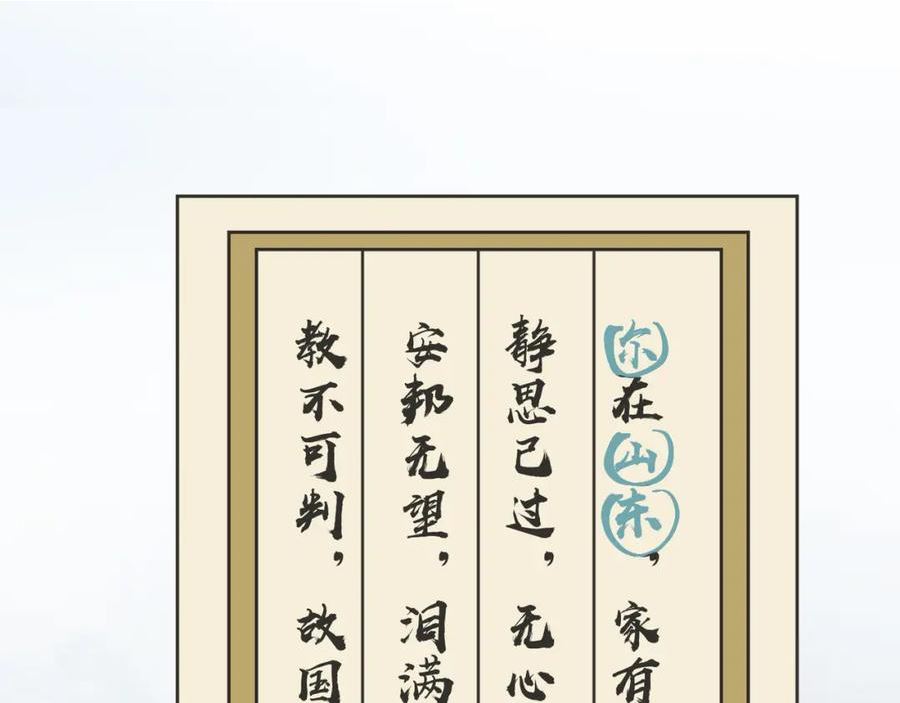 尔在山东，家有
静思己过，无心
安邦无望，泪满
教不可判，故国